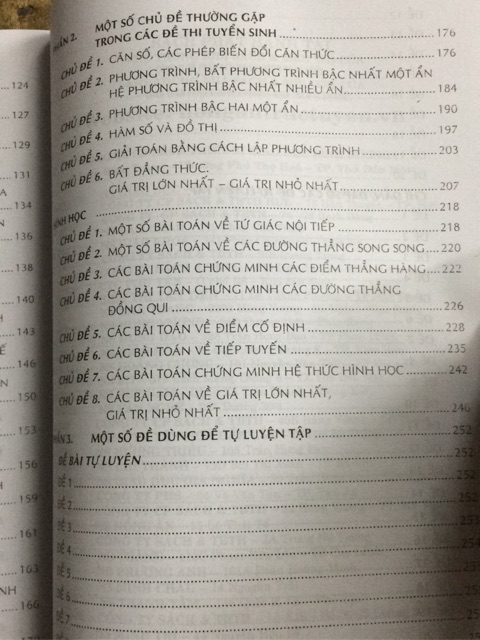 124
127
129
131
A
134
136
138
140
H
143
Ế
146
N
150
153
156
159
161
163
NH
166
PHẦN 2. MỘT SỐ CHỦ ĐỀ THƯỜNG GẶP
TRONG CÁC ĐỀ THI TUYỂN SINH 176
CHỦ ĐỀ 1. CĂN SỐ, CÁC PHÉP BIẾN ĐỔI CĂN THỨC 176
CHỦ ĐỀ 2. PHƯƠNG TRÌNH, BẤT PHƯƠNG TRÌNH BẬC NHẤT MỘT ẨN
HỆ PHƯƠNG TRÌNH BẬC NHẤT NHIỀU ẨN 184
CHỦ ĐỀ 3. PHƯƠNG TRÌNH BẬC HAI MỘT ẨN 190
CHỦ ĐỀ 4. HÀM SỐ VÀ ĐỒ THỊ 197
CHỦ ĐỀ 5. GIẢI TOÁN BẰNG CÁCH LẬP PHƯƠNG TRÌNH 203
CHỦ ĐỀ 6. BẤT ĐẲNG THỨC.
GIÁ TRỊ LỚN NHẤT – GIÁ TRỊ NHỎ NHẤT 207
HÌNH HỌC 218
CHỦ ĐỀ 1. MỘT SỐ BÀI TOÁN VỀ TỨ GIÁC NỘI TIẾP 218
CHỦ ĐỀ 2. MỘT SỐ BÀI TOÁN VỀ CÁC ĐƯỜNG THẲNG SONG SONG 220
CHỦ ĐỀ 3. CÁC BÀI TOÁN CHỨNG MINH CÁC ĐIỂM THẲNG HÀNG 222
CHỦ ĐỀ 4. CÁC BÀI TOÁN CHỨNG MINH CÁC ĐƯỜNG THẲNG
ĐỒNG QUI 226
CHỦ ĐỀ 5. CÁC BÀI TOÁN VỀ ĐIỂM CỐ ĐỊNH 228
CHỦ ĐỀ 6. CÁC BÀI TOÁN VỀ TIẾP TUYẾN 235
CHỦ ĐỀ 7. CÁC BÀI TOÁN CHỨNG MINH HỆ THỨC HÌNH HỌC 242
CHỦ ĐỀ 8. CÁC BÀI TOÁN VỀ GIÁ TRỊ LỚN NHẤT,
GIÁ TRỊ NHỎ NHẤT 246
PHẦN 3. MỘT SỐ ĐỀ DÙNG ĐỂ TỰ LUYỆN TẬP 252
ĐỀ BÀI TỰ LUYỆN 252
ĐỀ 1 252
ĐỀ 2 252
ĐỀ 3 253
ĐỀ 4
ĐỀ 5
ĐỀ 6
ĐỀ 7